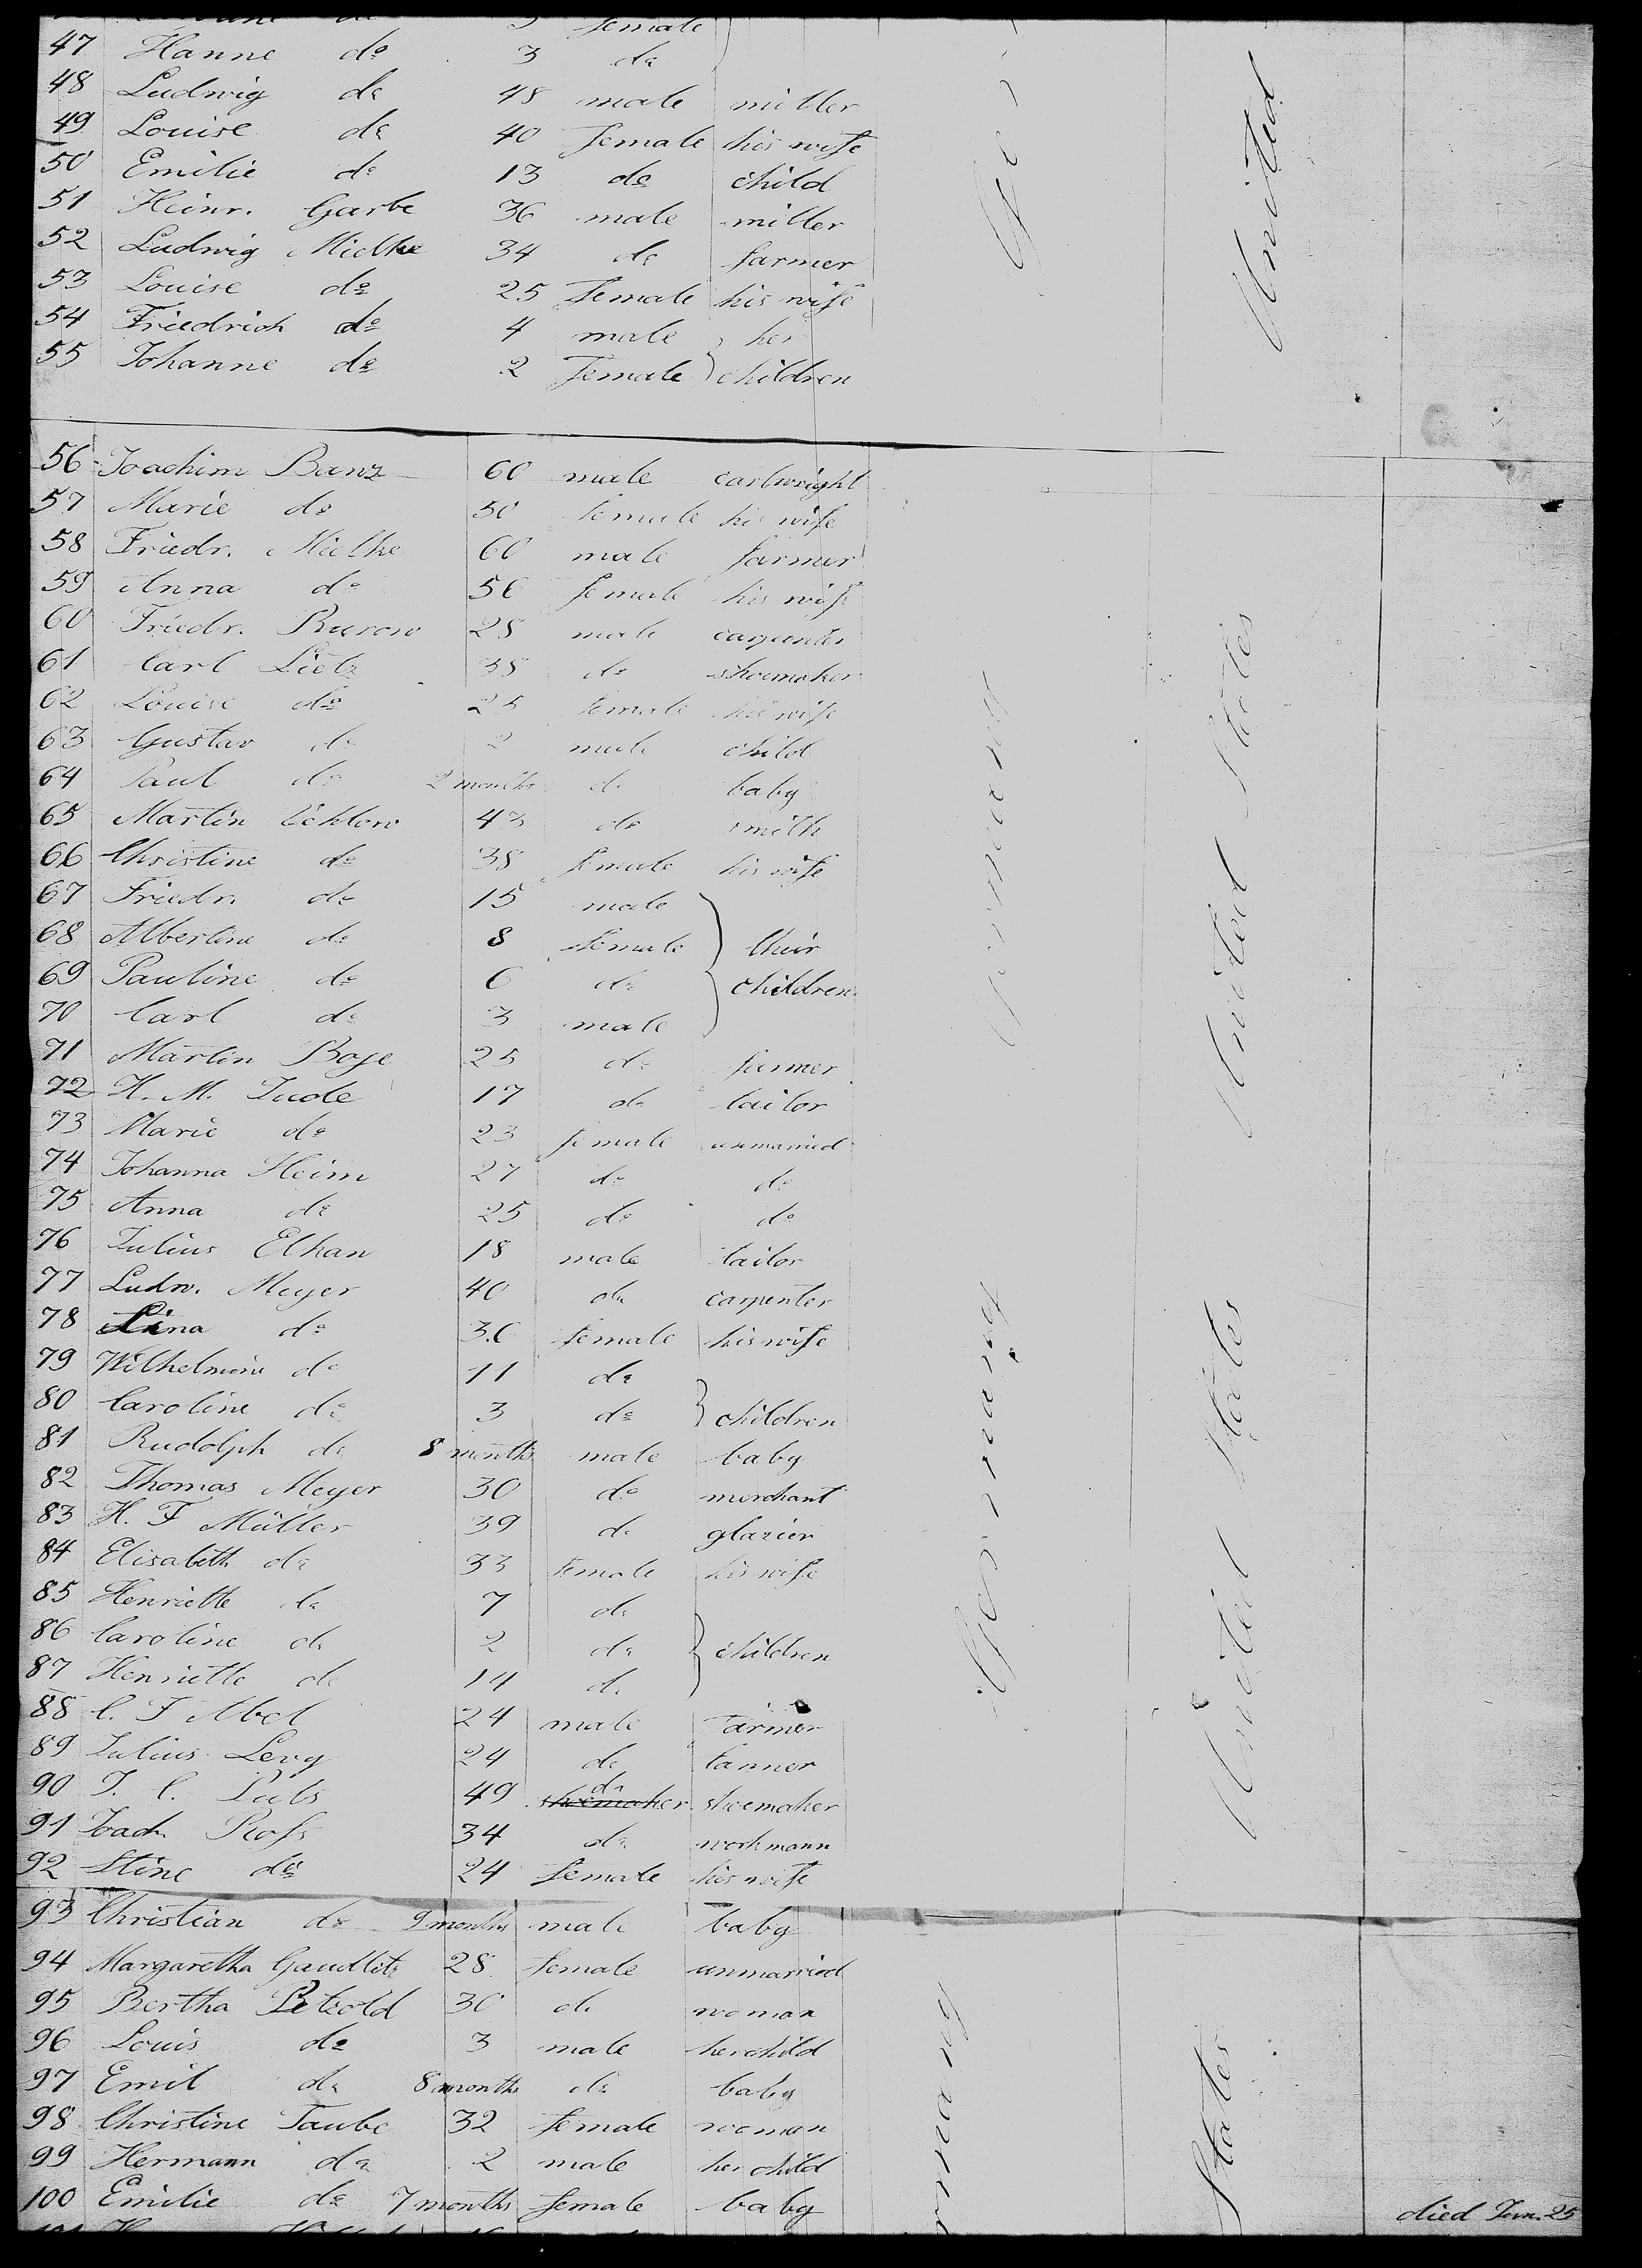 female
47 Hanne do 3 do
48 Ludwig do 48 male miller
49 Louise do 40 female his wife
50 Emilie do 13 do child
51 Heinr. Garbe 36 male miller
52 Ludwig Mielke 34 do farmer
53 Louise do 25 female his wife
54 Friedrich do 4 male her
55 Johanne do 2 female children
56 Joachim Banz 60 male cartwright
57 Marie do 50 female his wife
58 Friedr. Mielke 60 male farmer
59 Anna do 56 female his wife
60 Friedr. Burow 28 male carpenter
61 Carl Lietz 38 do shoemaker
62 Louise do 25 female his wife
63 Gustav do 2 male child
64 Paul do 2 months do baby
65 Martin 43 do smith
66 Christine do 38 female his wife
67 Friedr. do 15 male
68 Albertine do 8 female their
69 Pauline do 6 do children
70 Carl do 3 male
71 Martin Boje 25 do farmer
72 H. M. Tude 17 do tailor
73 Marie do 23 female unmarried
74 Johanna Heim 27 do do
75 Anna do 25 do do
76 Julius Elkan 18 male tailor
77 Ludw. Meyer 40 do carpenter
78 Lina do 36 female his wife
79 Wilhelmine do 11 do
80 Caroline do 3 do children
81 Rudolph do 8 months male baby
82 Thomas Meyer 30 do merchant
83 H. F Müller 39 do glazier
84 Elisabeth do 33 female his wife
85 Henriette do 7 do
86 Caroline do 2 do children
87 Henriette do 14 do
88 C. F Abel 24 male farmer
89 Julius Levy 24 do tanner
90 J. C. 49 shoemaker do shoemaker
91 Joach. Rofs 34 do workmann
92 Stine do 24 female his wife
93 Christian do 9 months male baby
94 Margaretha Gaudlitz 28 female unmarried
95 Bertha Petzold 30 do woman
96 Louis do 3 male her child
97 Emil do 8 months do baby
98 Christine Taube 32 female woman
99 Hermann do 2 male her child
100 Emilie do 7 months female baby died Jun. 25
Germany
Germany
United States
United States
United States